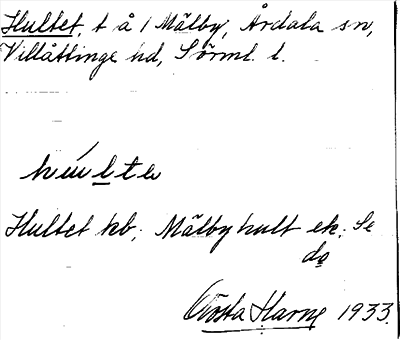 Hultet, t å 1 Mälby, Årdala sn,
Villåttinge hd, Sörml. l.
hu̍lte
Hultet kb; Mälbyhult ek. Se
do
Gösta Harne 1933.